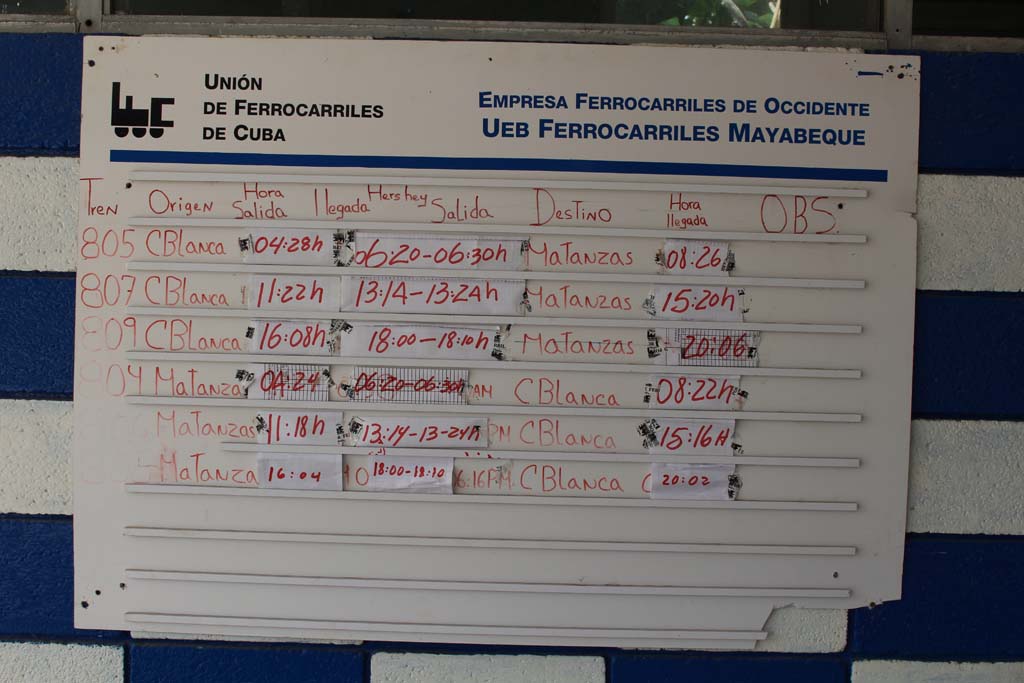 UNIÓN
DE FERROCARRILES
DE CUBA
EMPRESA FERROCARRILES DE OCCIDENTE
UEB FERROCARRILES MAYABEQUE
Tren Origen Hora Salida llegada Hershey Salida Destino Hora llegada OBS.
805 CBlanca 04:28h 06:20-06:30h Matanzas 08:26
807 CBlanca 11:22h 13:14-13:24h Matanzas 15:20h
809 CBlanca 16:08h 18:00-18:10h Matanzas 20:06
904 Matanza 04:24 06:20-06:30h AM CBlanca 08:22h
Matanzas 11:18h 13:14-13-24h PM CBlanca 15:16H
Matanza 16:04 18:00-18:10 6:16P.M. CBlanca 20:02